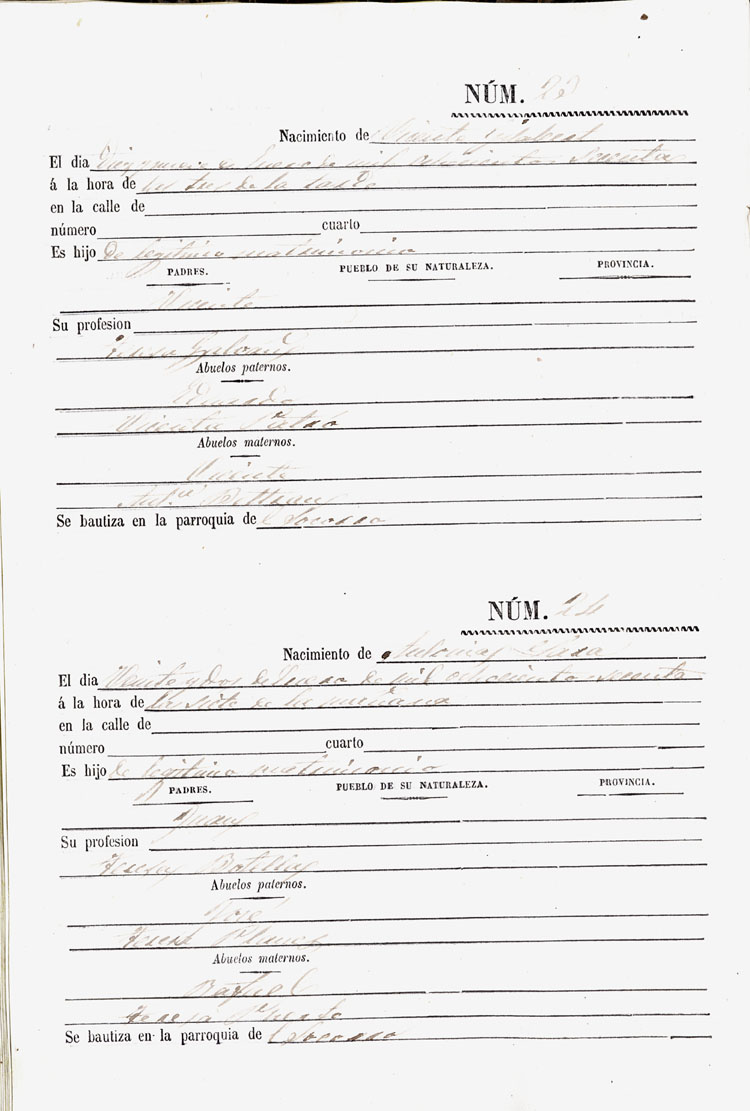 NÚM. 23
Nacimiento de Vicente
El dia Diez y nueve de Enero de mil ochocientos sesenta
á la hora de las tres de la tarde
en la calle de
número cuarto
Es hijo de legitimo matrimonio
PADRES. PUEBLO DE SU NATURALEZA. PROVINCIA.
Vicente
Su profesion
Teresa
Abuelos paternos.
Vicenta
Abuelos maternos.
Vicente
Ant.ª Beltran
Se bautiza en la parroquia de el Socorro
NÚM. 24
Nacimiento de Antonia
El dia Veinte y dos de Enero de mil ochocientos sesenta
á la hora de las siete de la mañana
en la calle de
número cuarto
Es hijo de legitimo matrimonio
PADRES. PUEBLO DE SU NATURALEZA. PROVINCIA.
Juan
Su profesion
Teresa
Abuelos paternos.
José
Teresa
Abuelos maternos.
Rafael
Teresa
Se bautiza en la parroquia de el Socorro